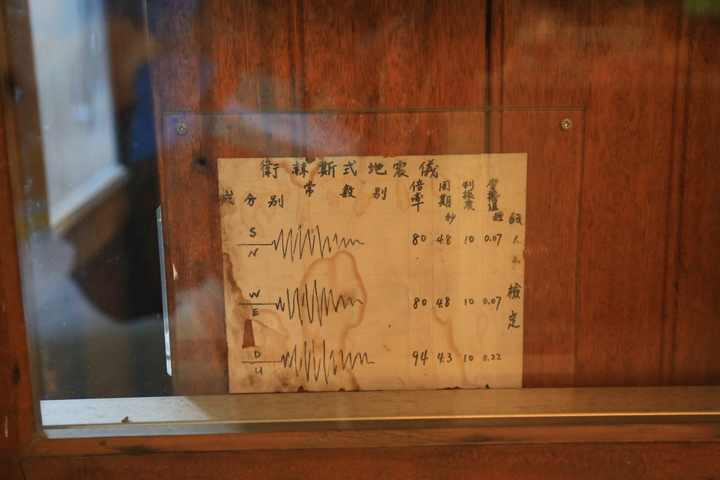 衛赫斯式地震儀
常數別
成分別
倍率 周期秒 制振度 摩擦値
S
N 80 4.8 10 0.07
W
E 80 4.8 10 0.07
D
U 94 4.3 10 0.22
檢定